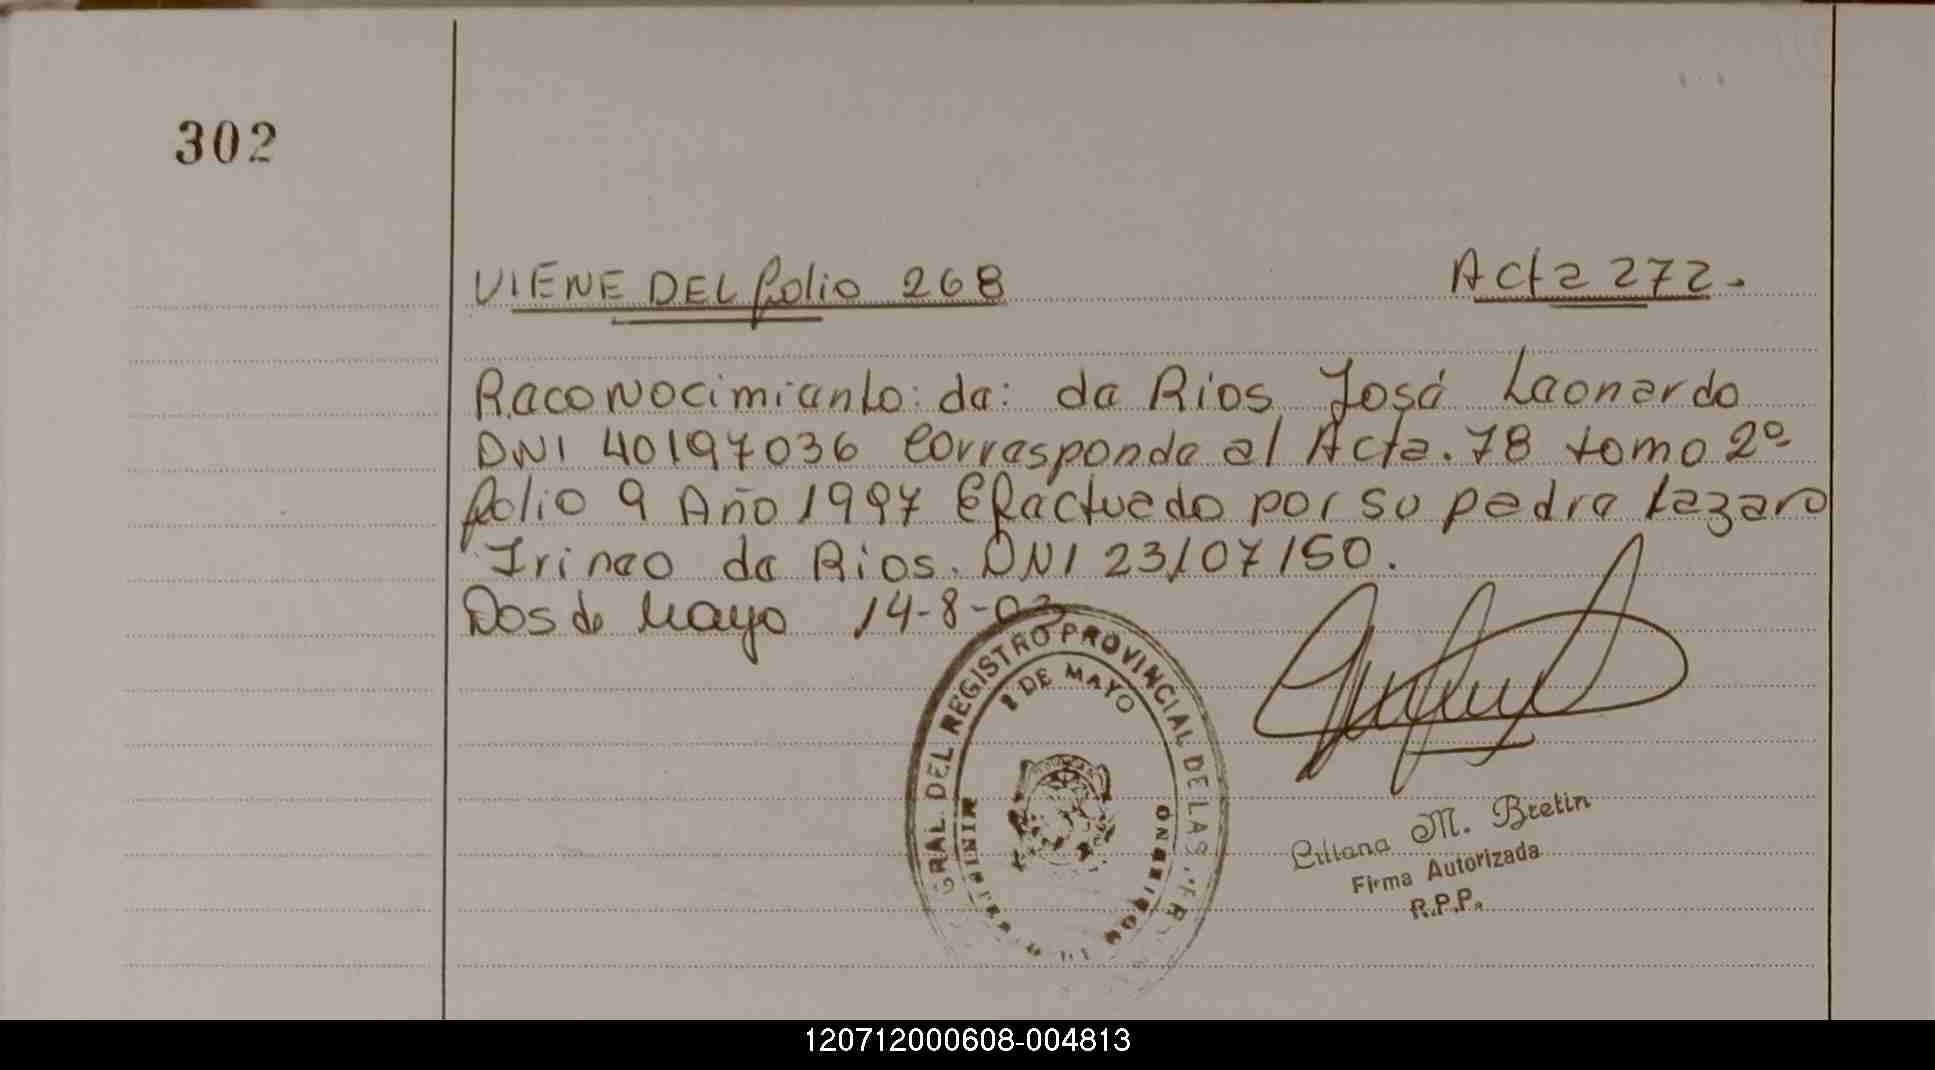 302
VIENE DEL folio 268 Acta 272.
Reconocimiento: de: de Rios José Leonardo
DNI 40197036 Corresponde al Acta. 78 tomo 2º
folio 9 Año 1997 Efectuado por su padre Lazaro
Irineo de Rios. DNI 23107150.
Dos de Mayo 14-8-03
GRAL. DEL REGISTRO PROVINCIAL DE LAS
2 DE MAYO
MISIONES
Liliana M. Bretin
Firma Autorizada
R.P.P.
120712000608-004813